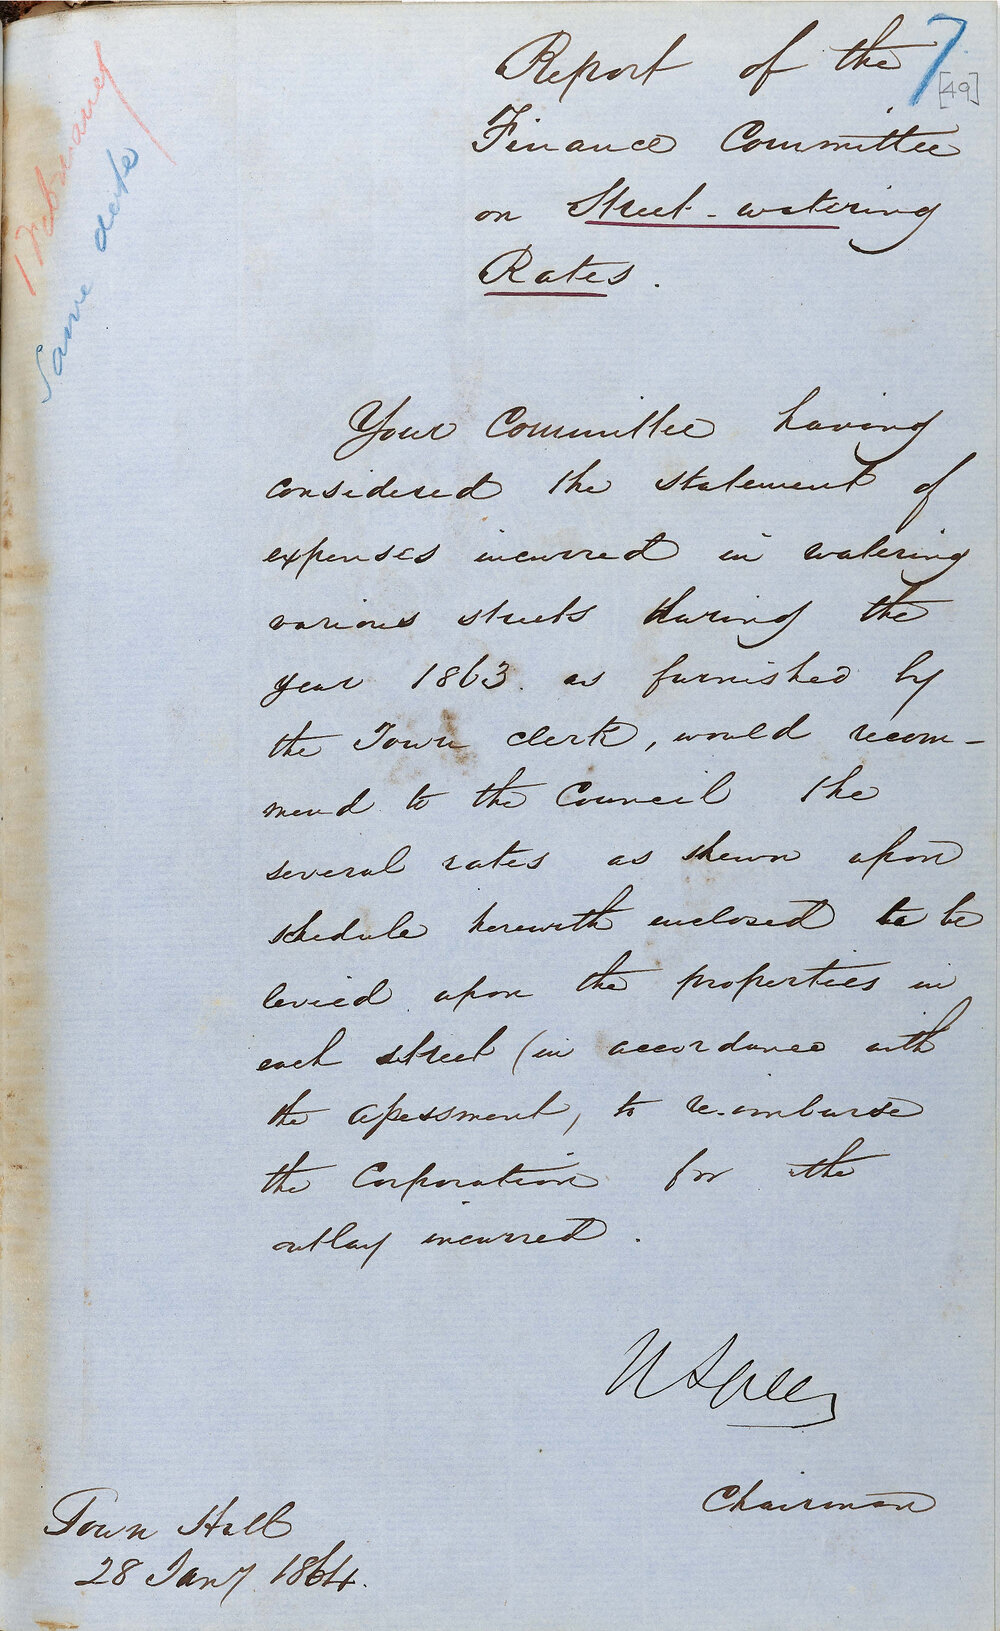 7
[49]
1 February
Same date
Report of the
Finance Committee
on Street-watering
Rates.
Your Committee having
considered the statement of
expenses incurred in watering
various streets during the
year 1863. as furnished by
the Town Clerk, would recom-
mend to the Council the
several rates as shewn upon
schedule herewith enclosed to be
levied upon the properties in
each street (in accordance with
the assessment, to re-imburse
the Corporation for the
outlay incurred.
Chairman
Town Hall
28 Jany. 1864.